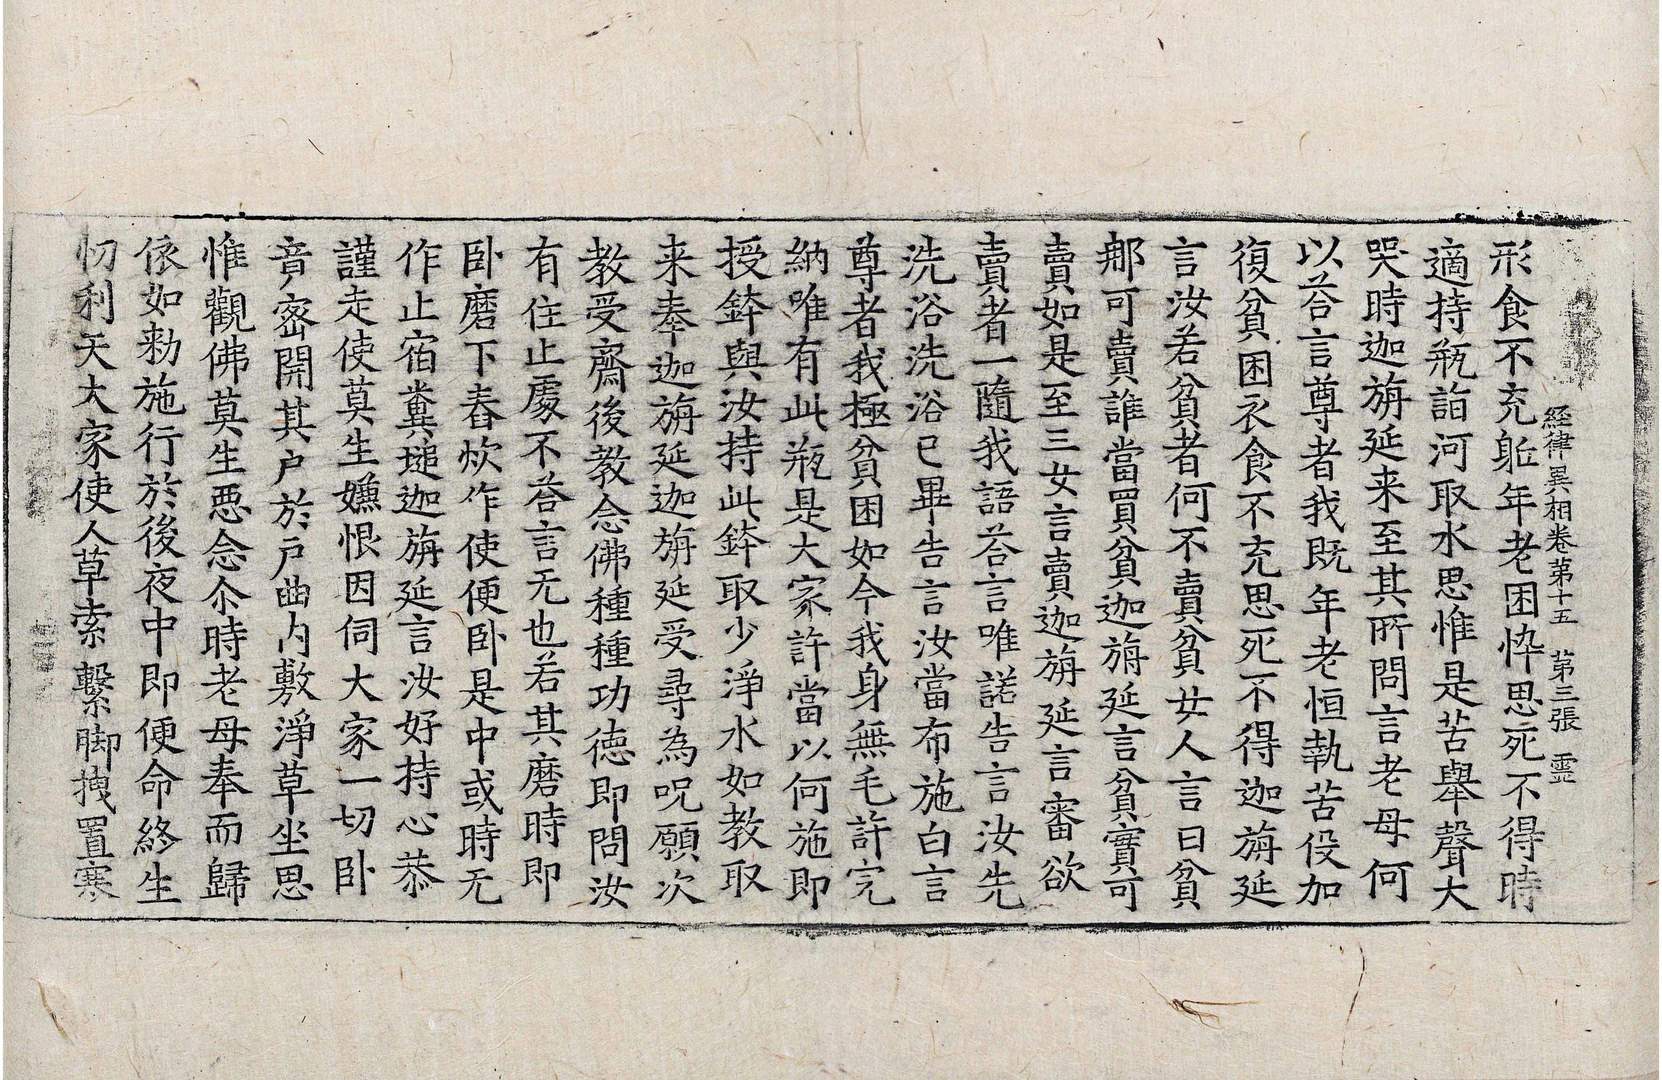 經律異相卷第十五　第三張　靈
形食不充軀年老困悴思死不得時
適持瓶詣河取水思惟是苦舉聲大
哭時迦旃延来至其所問言老母何
以荅言尊者我既年老恒執苦役加
復貧困衣食不充思死不得迦旃延
言汝若貧者何不賣貧女人言曰貧
那可賣誰當買貧迦旃延言貧實可
賣如是至三女言賣迦旃延言審欲
賣者一隨我語荅言唯諾告言汝先
洗浴洗浴已畢告言汝當布施白言
尊者我極貧困如今我身無毛許完
納唯有此瓶是大家許當以何施即
授鉢與汝持此鉢取少淨水如教取
来奉迦旃延迦旃延受尋為呪願次
教受齋後教念佛種種功德即問汝
有住止處不荅言无也若其磨時即
卧磨下舂炊作使便卧是中或時无
作止宿糞塠迦旃延言汝好持心恭
謹走使莫生嫌恨因伺大家一切卧
音密開其户於户曲内敷淨草坐思
惟觀佛莫生惡念尒時老母奉而歸
依如勑施行於後夜中即便命終生
忉利天大家使人草索繫脚拽置寒